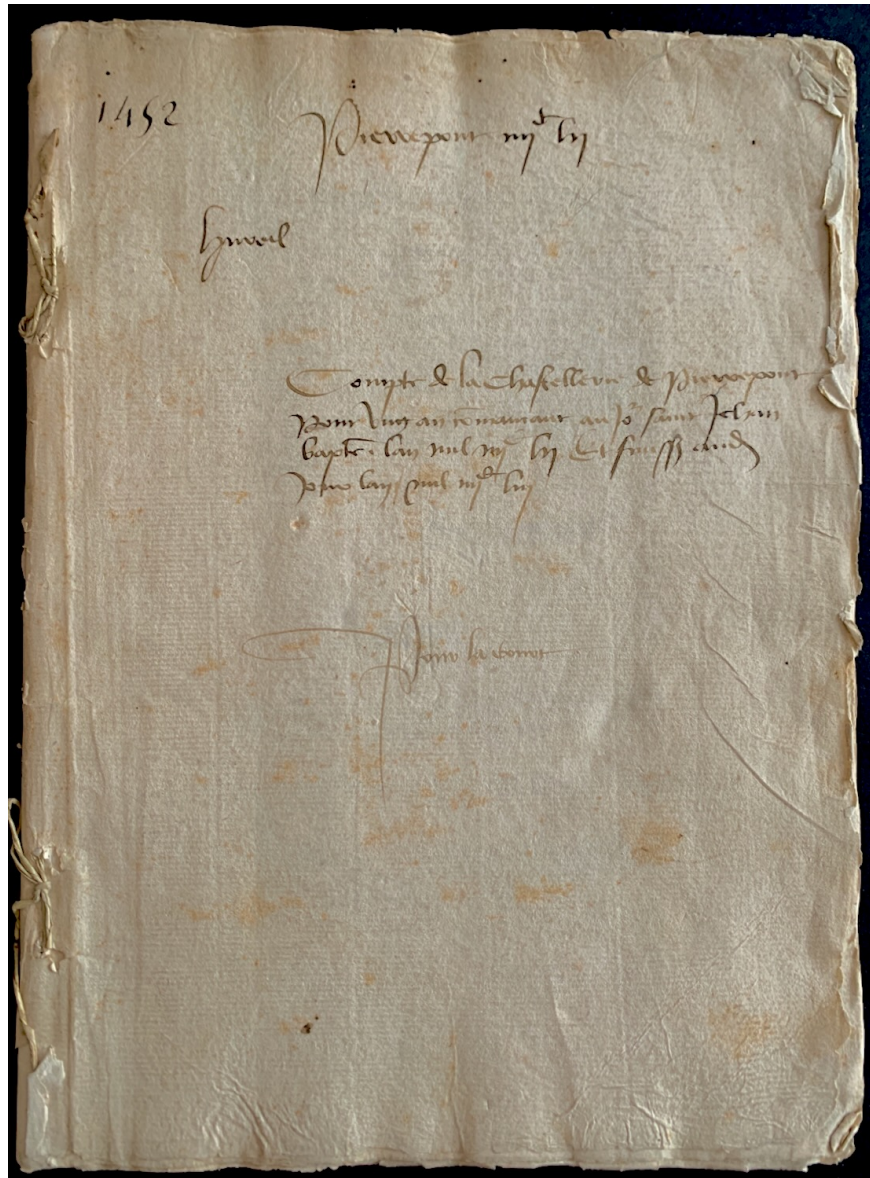 1452
Pierrepont iiijc lij
Compte de la Chastellerie de Pierrepont
Pour ung an comancant au jor saint Jehan
bapte lan mil iiijc lij Et finiss aud
jour lan mil iiijc liij
Pour la court